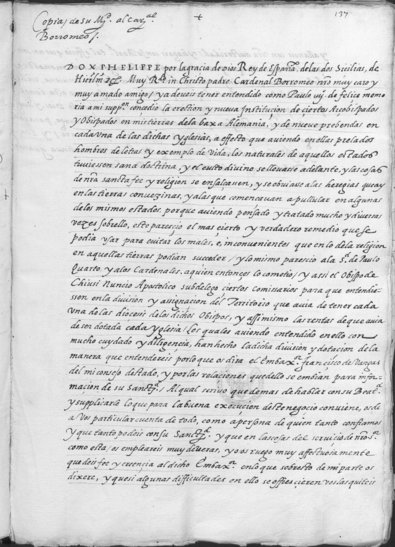 Copia, de su Mg.d al Car.al
Borromeo /.
137
DOX PHELIPPE por la gracia de dios Rey de España, de las dos Sicilias, de
Hirlm &c. Muy R.do in Christo padre Cardenal Borromeo nro muy caro y
muy amado amigo / ya deueis tener entendido como Paulo iiij. de felice memo
ria a mi supp.on concedio la erection y nueua Institucion de ciertos Arcobispados
y Obispados en mis tierras de la baxa Alemania, y de nueue prebendas en
cada vna de las dichas yglesias, a effetto que auiendo en ellas prelados
hombres de letras y exemplo de vida, los naturales de aquellos estados
tuuiesson sana dotrina, y el culto diuino se lleuasse adelante, y las cosas
de nra sancta fee y religion se ensalcassen, y se obuiasse a las heregias que ay
en las tierras conuezinas, y a las que comencauan a pullular en algunas
de los mismos estados porque auiendo pensado y tratado mucho y diuersas
vezes sobrello, esto parescio el mas cierto y verdadero remedio que se
podia vsar para euitar los males, e inconuenientes que en lo de la religion
en aquellas tierras podian succeder / y lo mismo parescio ala S.d de Paulo
Quarto y a los Cardenales, a quien entonces lo cometio / y assi el Obispo de
Chiusi Nuncio Apostolico subdelego ciertos Comissarios para que entendie-
ssen en la diuision y assignacion del Territorio que auia de tener cada
vna de las diocesis de los dichos Obispos, y assimismo las rentas de que auia
de ser dotada cada yglesia / los quales auiendo entendido en ello con
mucho cuydado y diligencia, han hecho la dicha diuision y dotacion de la
manera que entendereis por lo que os dira el Embax.or francisco de Vargas
del mi consejo de stado, y por las relaciones que dello se embian para infor-
macion de su Sanct.d / Al qual scriuo que demas de hablar con su Beat.d
y supplicarle lo que para la buena execucion deste negocio conuiene, os de
a Vos particular cuenta de todo, como a persona de quien tanto confiamos
y que tanto podeis con su Sanct.d / y que en las cosas del seruicio de nro S.or
como esta, os empleareis muy de veras, y os ruego muy affetuosamente
que deis fee y creencia al dicho Embax.or en lo que sobresto de mi parte os
dixere, y que si algunas difficultades en ello se offrescieren vos las quiteis